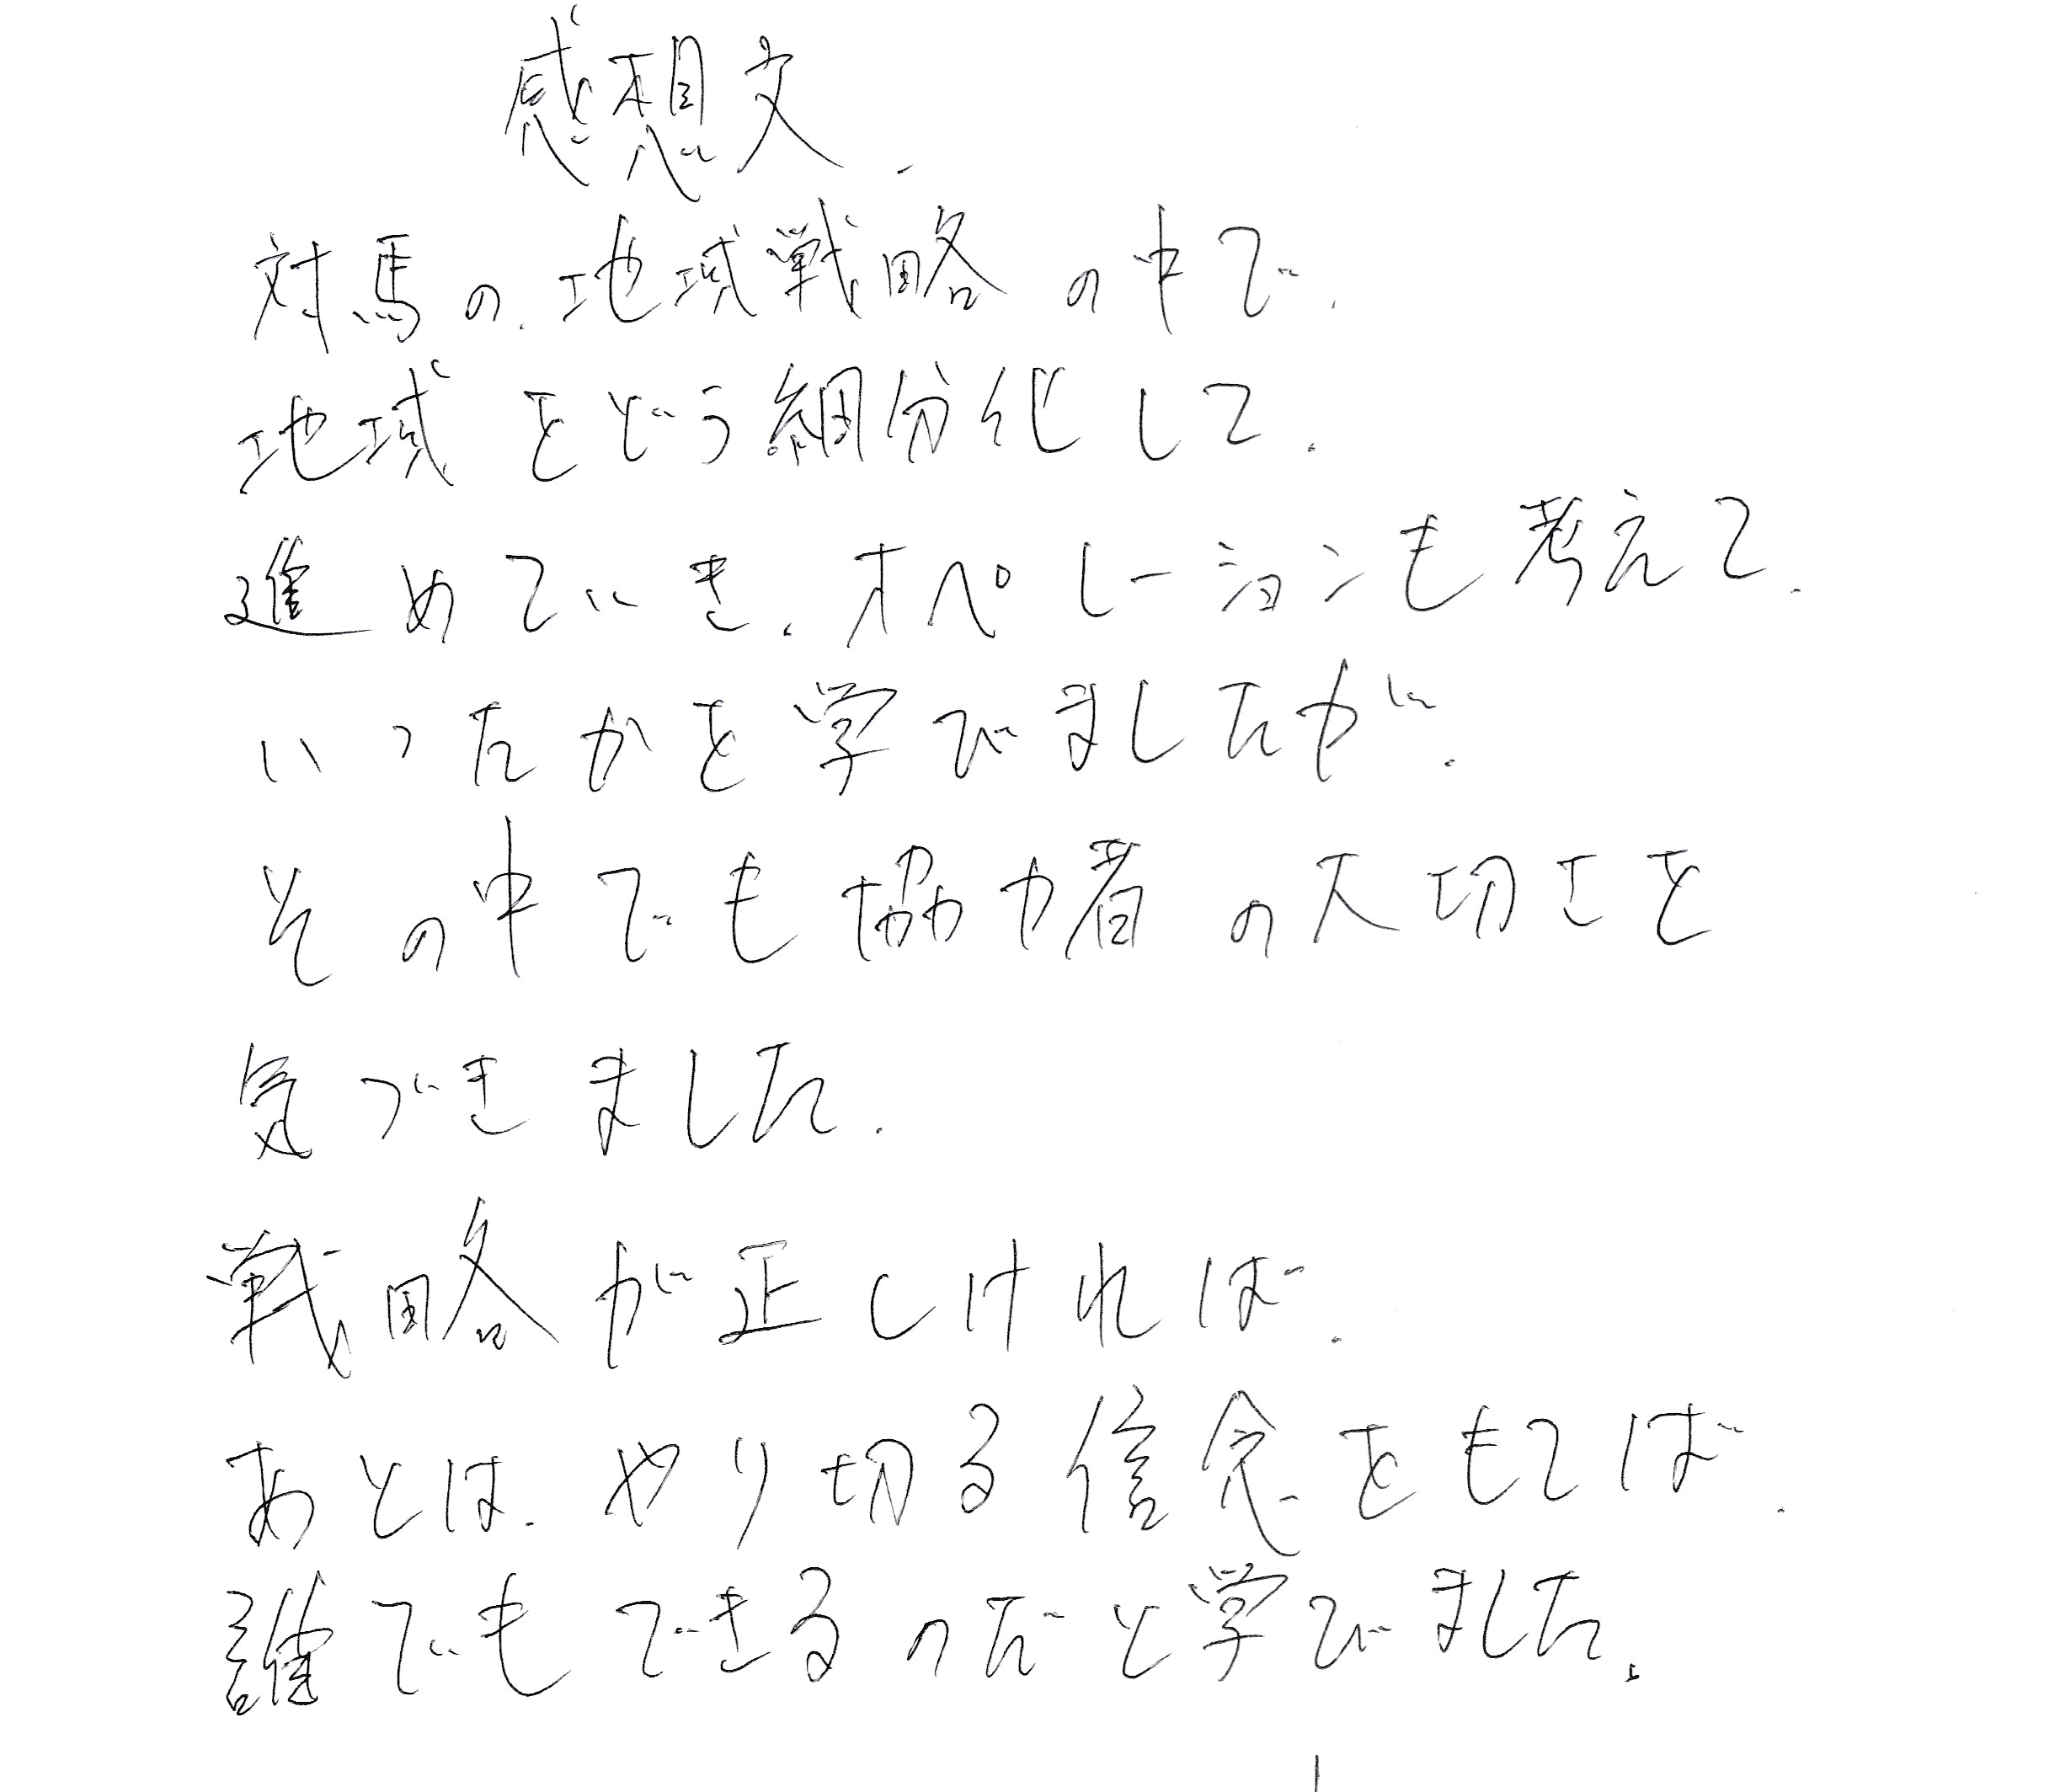 感想文.
対馬の.地域戦略の中で.
地域をどう細分化して.
進めていき.オペレーションも考えて.
いったかを学びましたが.
その中でも協力者の大切さを
気づきました.
戦略が正しければ.
あとは.やり切る信念をもてば.
誰でもできるのだと学びました.